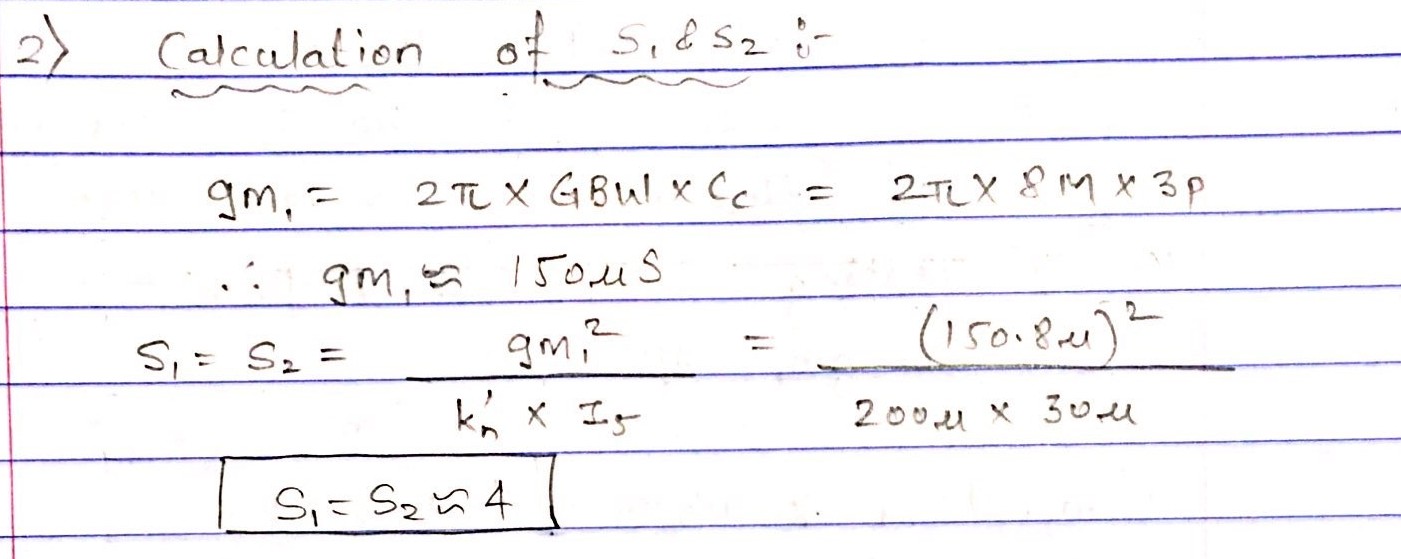 2) Calculation of S₁ & S₂ :-
gm₁ = 2π × GBW × Cc = 2π × 8M × 3p
∴ gm₁ ≈ 150μS
S₁ = S₂ = gm₁² / kn' × I₅ = (150.8μ)² / 200μ × 30μ
S₁ = S₂ ≈ 4